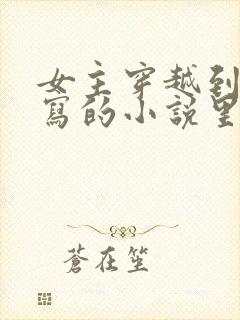 女主穿越到
寫的小說里
蒼在笙